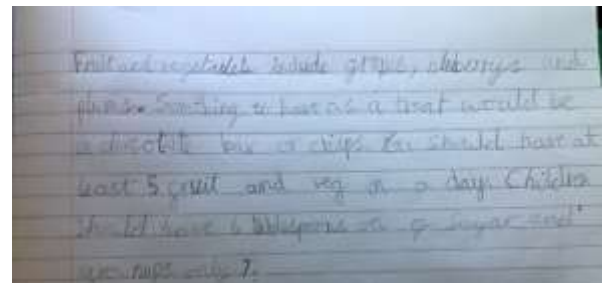 Fruit and vegetables include grapes, and
plums. Something to have as a treat would be
a chocolate bar or crisps. You should have at
least 5 fruit and veg in a day. Children
should have 6 of sugar and
grownups only 7.